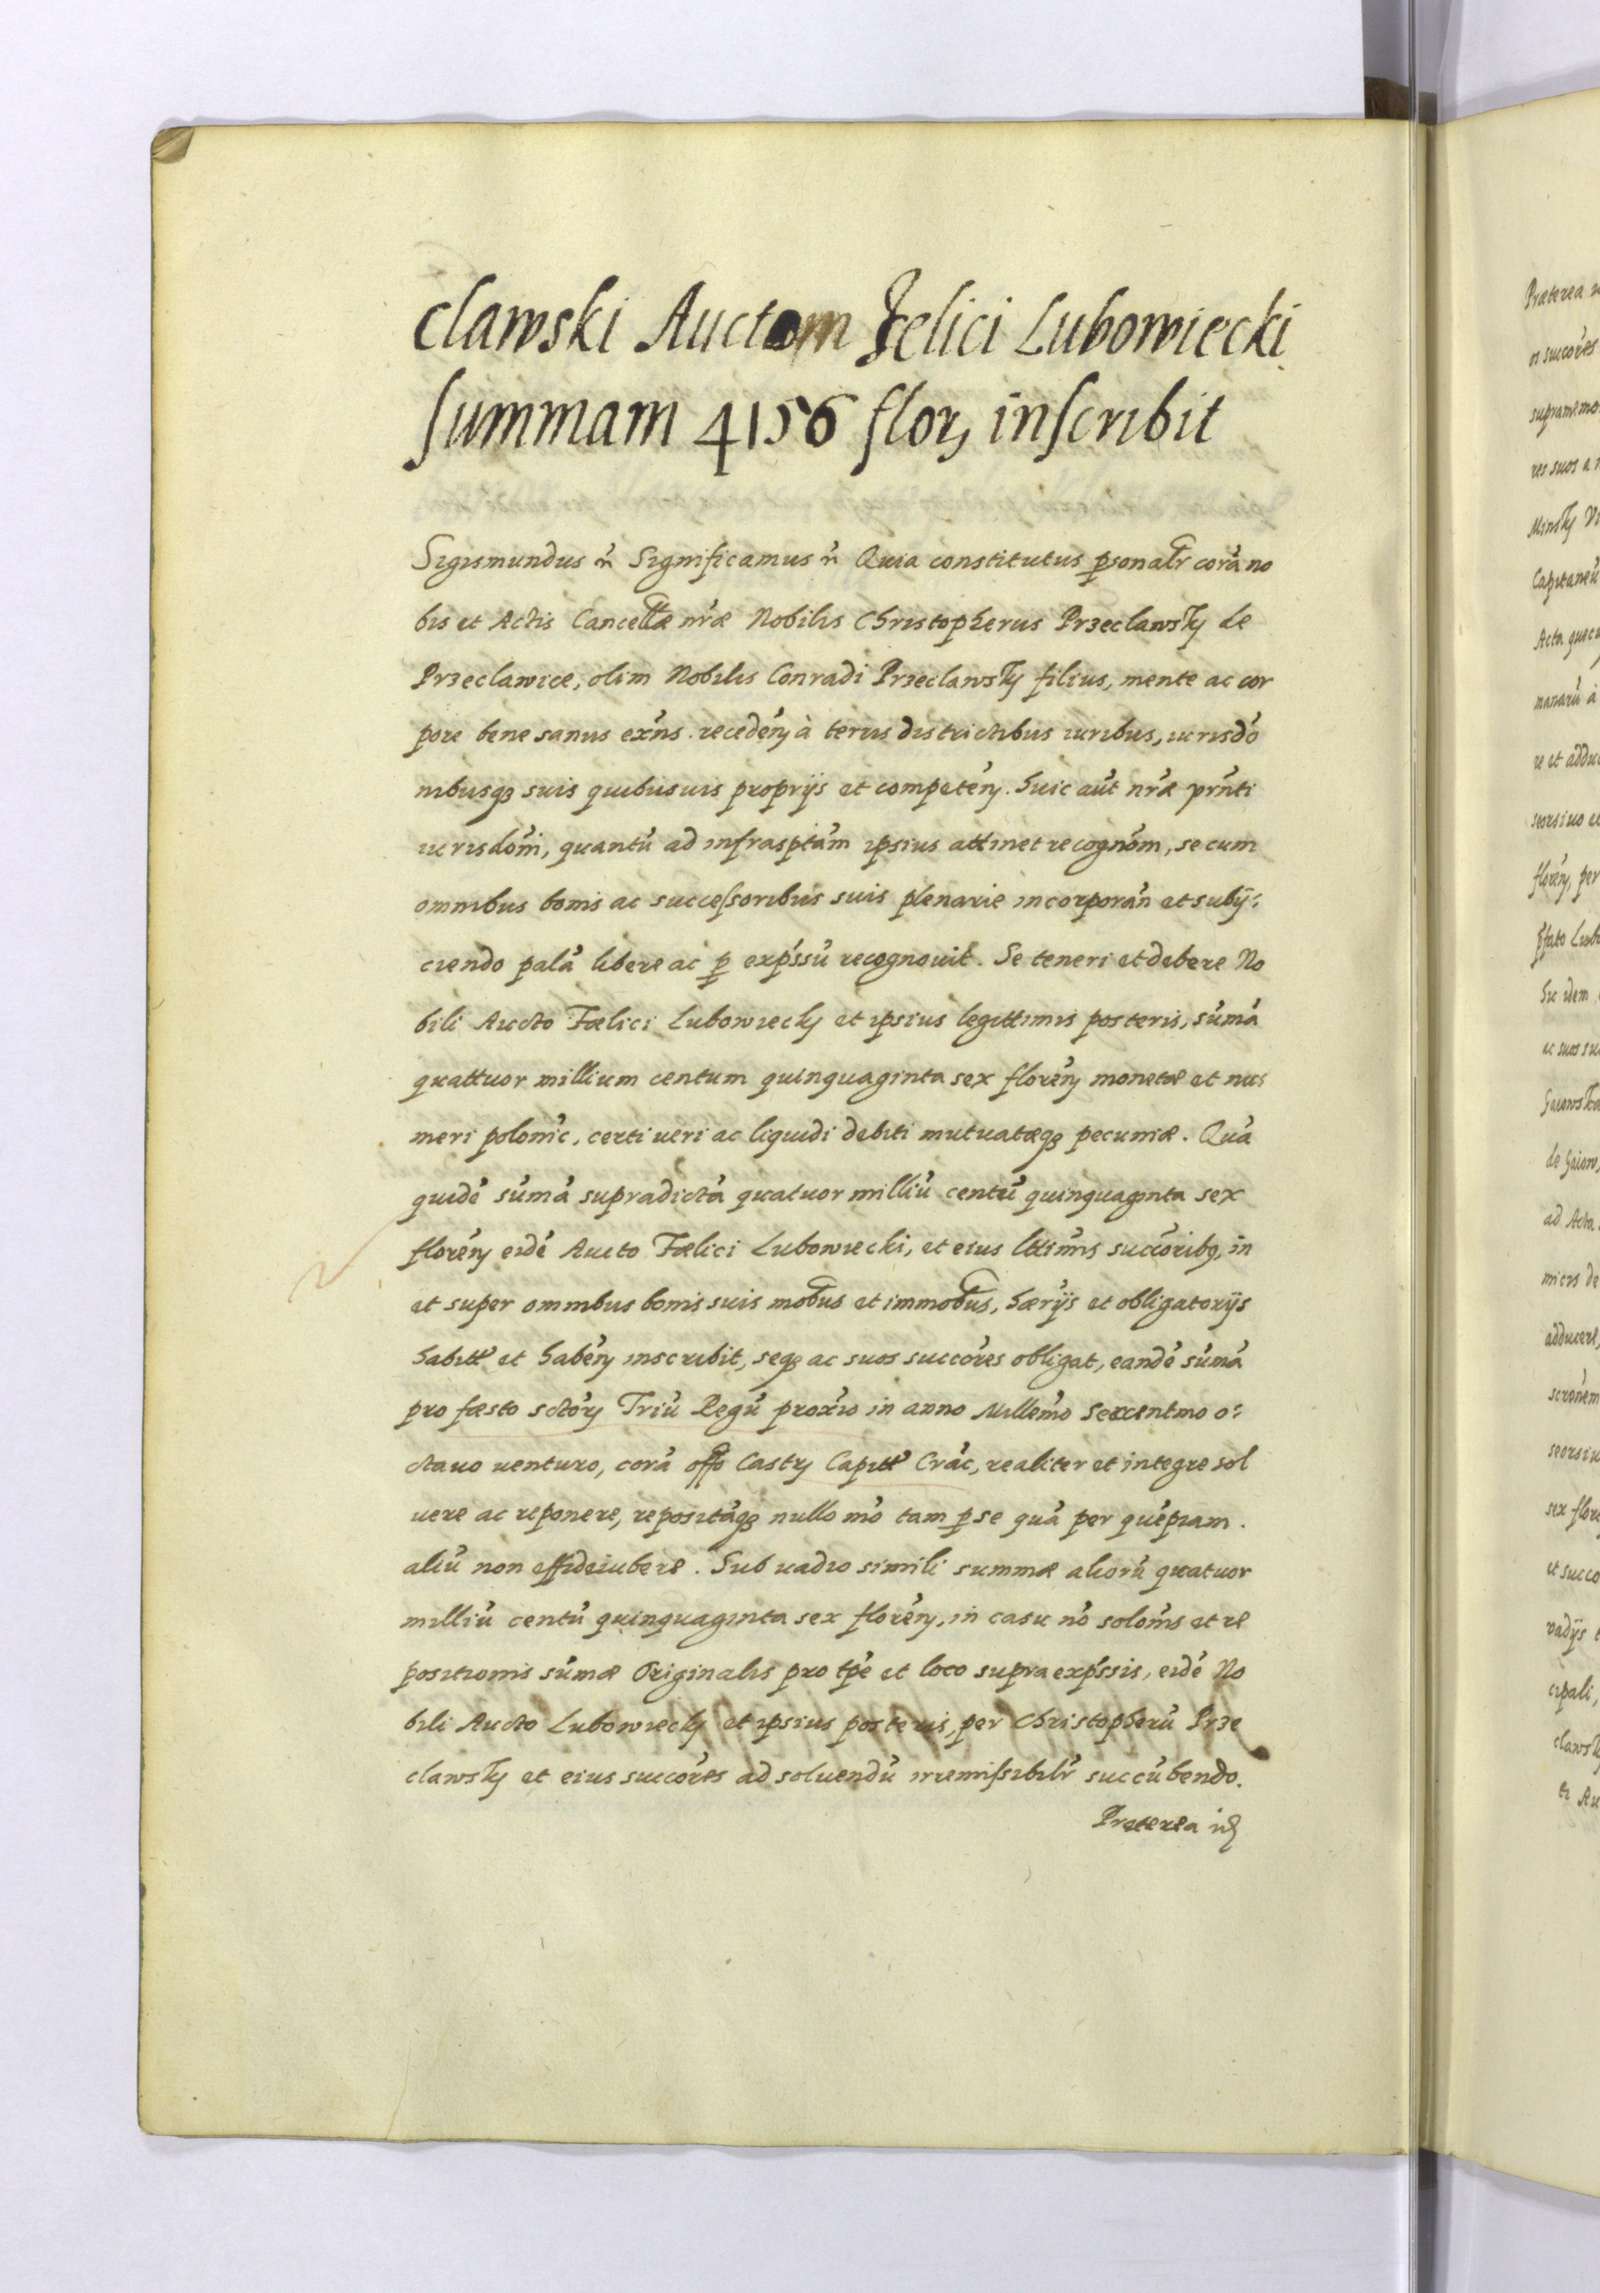 clawski Auctom Felici Lubowiecki
summam 4156 flor, inscribit
Sigismundus &c Significamus &c Quia constitutus psonalr corā no
bis et Actis Cancellæ nræ Nobilis Christopherus Przeclawsky de
Przeclawice, olim Nobilis Conradi Przeclawsky filius, mente ac cor
pore bene sanus exns. recedēn à terris districtibus iuribus, iurisdo
nibusq3 suis quibusuis proprijs et competēn. huic aūt nræ prnti
iurisdōni, quantū ad infrasptām ipsius attinet recognōm, se cum
omnibus bonis ac successoribus suis plenarie incorporān et subij:
ciendo palā libere ac p expssū recognouit. Se teneri et debere No
bili Aucto Fœlici Lubowiecky et ipsius legittimis posteris, sūmā
quattuor millium centum quinquaginta sex florēn monetæ et nu:
meri polonic, certi ueri ac liquidi debiti mutuatæq3 pecuniæ. Quā
quidē sūmā supradictā quatuor milliū centū quinquaginta sex
florēn eidē Aucto Fœlici Lubowiecki, et eius lttimis succoribq, in
et super omnibus bonis suis mobus et immobus, hærijs et obligatorijs
habitt et habēn inscribit, seq3 ac suos succores obligat, eandē sūmā
pro fæsto sctory Triū Regū proxio in anno Millemo Sexcentmo o:
ctauo uenturo, corā offo Castry Capitt Crāc, realiter et integre sol
uere ac reponere, repositāq3 nullo mō tam p se quā per quēpiam.
aliū non effideiubere. Sub uadio simili summæ aliorū quatuor
milliū centū quinquaginta sex florēn, in casu nō solonis et re
positionis sūmæ Originalis pro tpe et loco supra expssis, eidē No
bili Aucto Lubowiecky et ipsius posteris, per Christopherū Prze
clawsky et eius succores ad soluendū irremissibilr succūbendo.
Præterea id